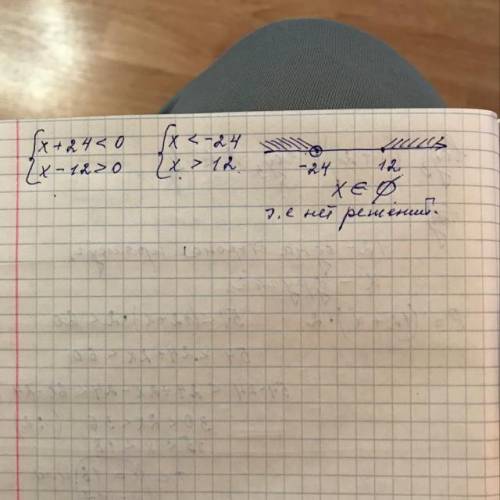 {x+24<0 {x<-24
{x-12>0 {x>12
-24 12
x∈∅
т.е нет решений.